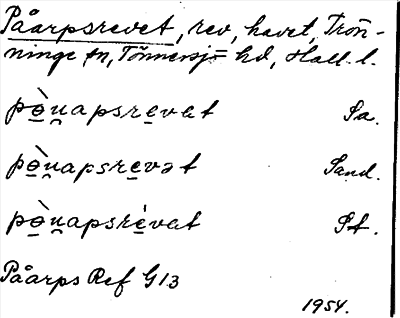 Påarpsrevet, rev, havet, Trön-
ninge sn, Tönnersjö hd, Hall. l.
pò̱u̯apsre̱vat Sa.
pò̱u̯apsre̱vət Sand.
pò̱u̯apsrè̱vat St.
Påarps Ref G13
1954.